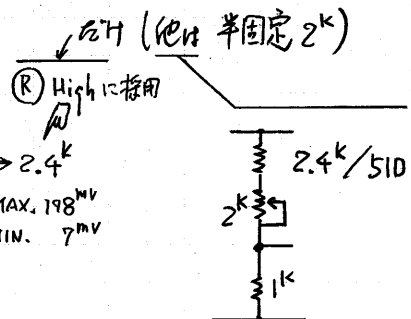 だけ (他は 半固定 2K)
Ⓡ High に採用
μ
→ 2.4K
MAX. 198mV
MIN. 7mV
2.4K/510
2K
1K